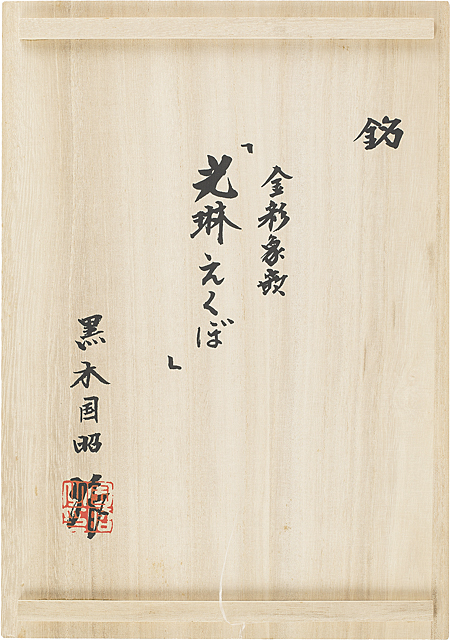 銘
金彩象嵌
「光琳えくぼ」
黒木国昭